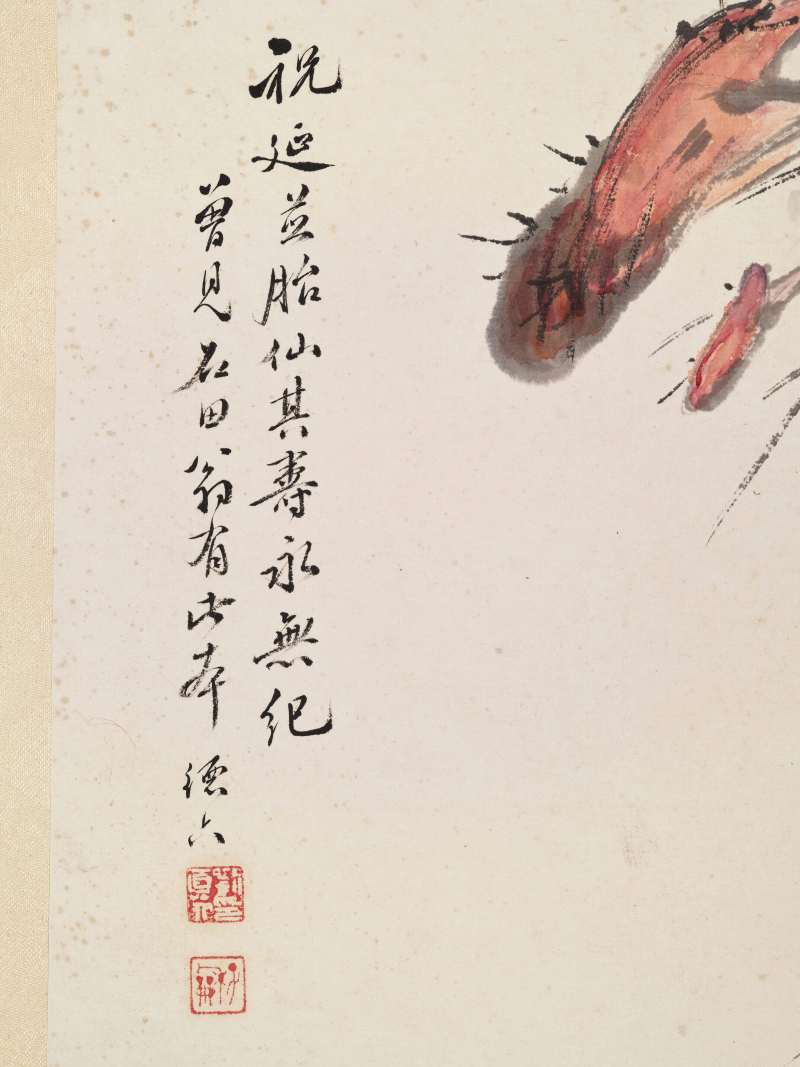 祝延並胎仙其壽永無紀
曾見石田翁有此本
德六